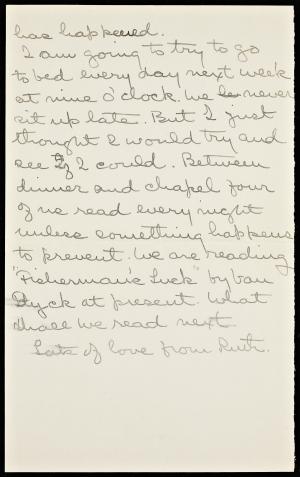 has happened.
I am going to try to go
to bed every day next week
at nine o'clock. We never
sit up late. But I just
thought I would try and
see if I could. Between
dinner and chapel four
of us read every night
unless something happens
to prevent. We are reading
"Fisherman's Luck" by Van
Dyck at present. What
shall we read next.
Lots of love from Ruth.